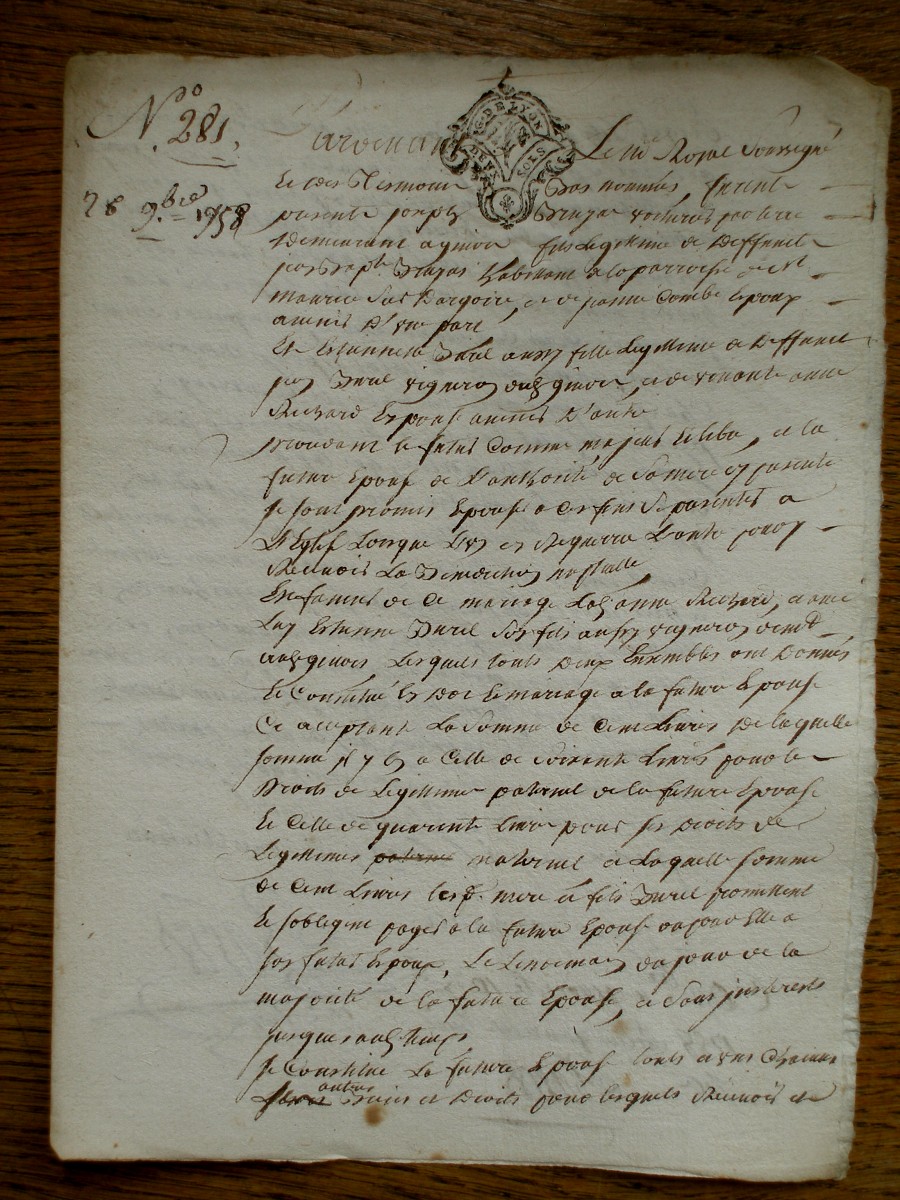 N° 281.
28 9.bre 1758
Pardevant Le no. Royal Soussigné
G. DE LYON
DEUX SOLS
Et des Temoins Bas nommés, furent
presents joseph voiturier par terre
Demeurant a givor fils Legitime de Deffunct
joseph habitant a la parroisse de St
maurice Sur Dargoire, et de jeanne Combe Epoux
d'une part
Et Estiennette aussy fille Legitime a Deffunct
vigneron aud. givors, et de vivante anne
Richard Epouse D'autre
procedant le futur Comme majeur et libre, et la
future Epouse de L'authorité de Sa mere cy presente
Se sont promis Epouser a ces fins Se presenter a
L'Eglise Lorsque L'un en Requerra L'autre pour y
Recevoir La Benediction nuptialle
En faveur de Ce mariage Lad. anne Richard, et avec
Luy Estienne Son fils aussy vigneron demt.
aud. givors Lesquels touts Deux Ensembles ont Donnés
Et Constitué En Dot de mariage a la future Epouse
Ce acceptant La Somme de Cent Livres De laquelle
somme il y en a Celle de soixante Livres pour le
Droits de Legitime paternel de la future Epouse
Et Celle de quarente Livres pour ses Droits de
Legitimes paterne maternel et Laquelle somme
de Cent Livres lesd. mere et fils promettent
Et s'obligent payer a la future Epouse ou pour Elle a
son futur Epoux, Le Lendemain du jour de la
majorité de la future Epouse, et Sans interests
jusques aud. temps
Se Constitue La future Epouse touts a uns Chacuns
autres Biens et Droits pour lesquels Recevoir et